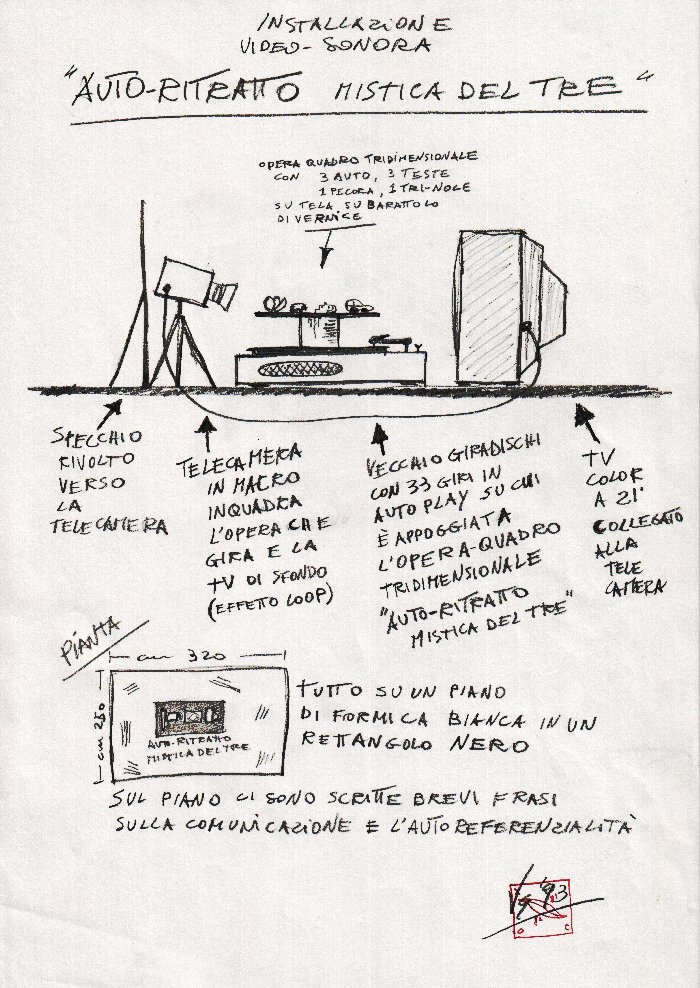 INSTALLAZIONE
VIDEO-SONORA
"AUTO-RITRATTO MISTICA DEL TRE"
OPERA QUADRO TRIDIMENSIONALE
CON 3 AUTO, 3 TESTE
1 PECORA, 1 TRI-NOLE
SU TELA SU BARATTOLO
DI VERNICE
SPECCHIO
RIVOLTO
VERSO
LA
TELECAMERA
TELECAMERA
IN MACRO
INQUADRA
L'OPERA CHE
GIRA E LA
TV DI SFONDO
(EFFETTO LOOP)
VECCHIO GIRADISCHI
CON 33 GIRI IN
AUTO PLAY SU CUI
È APPOGGIATA
L'OPERA-QUADRO
TRIDIMENSIONALE
"AUTO-RITRATTO
MISTICA DEL TRE"
TV
COLOR
A 21'
COLLEGATO
ALLA
TELE
CAMERA
PIANTA
cm 320
cm 250
AUTO-RITRATTO
MISTICA DEL TRE
TUTTO SU UN PIANO
DI FORMICA BIANCA IN UN
RETTANGOLO NERO
SUL PIANO CI SONO SCRITTE BREVI FRASI
SULLA COMUNICAZIONE E L'AUTOREFERENZIALITÀ
'93